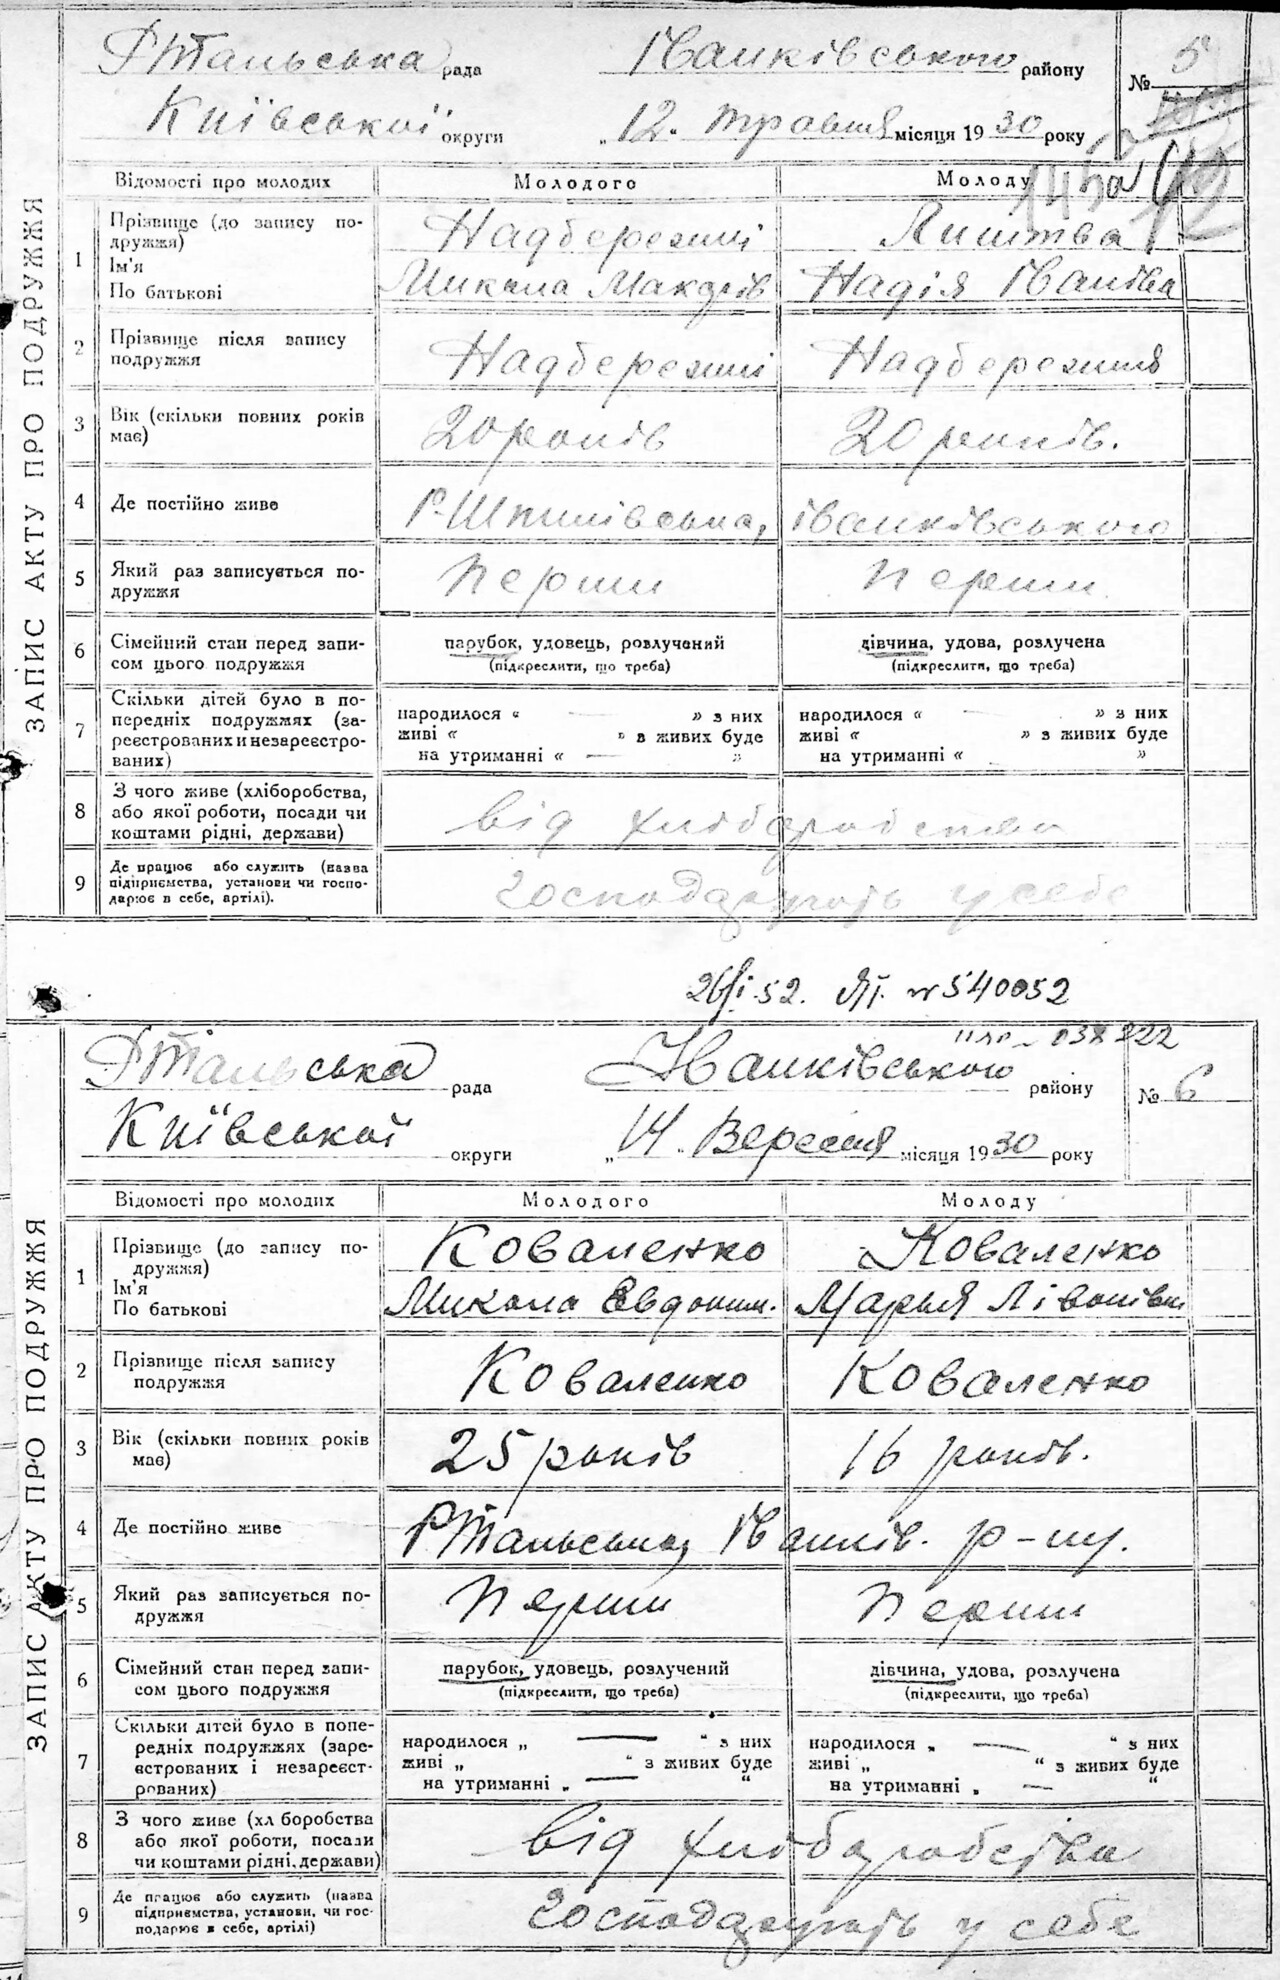 Р Тальська рада Іванківського району № 5
Київської округи „12. травня місяця 1930 року
145а
Відомості про молодих Молодого Молоду
ЗАПИС АКТУ ПРО ПОДРУЖЖЯ
1 Прізвище (до запису по-
дружжя)
Ім'я
По батькові
Надбережні Лиштва
Микола Макарів Надія Іванівна
2 Прізвище після запису
подружжя
Надбережні Надбережня
3 Вік (скільки повних років
має)
20 років 20 років.
4 Де постійно живе Р-Шпилівська, іванківського
5 Який раз записується по-
дружжя
перши перши
6 Сімейний стан перед запи-
сом цього подружжя
парубок, удовець, розлучений дівчина, удова, розлучена
(підкреслити, що треба) (підкреслити, що треба)
7 Скільки дітей було в по-
передніх подружжях (за-
реєстрованих и незареєстро-
ваних)
народилося “ — » з них народилося « — » з них
живі “ » в живих буде живі “ » з живих буде
на утриманні “ — » на утриманні « — »
8 З чого живе (хліборобства,
або якої роботи, посади чи
коштами рідні, держави)
від хліборобства
9 Де працює або служить (назва
підприємства, установи чи госпо-
дарює в себе, артілі).
господарують у себе
26/І-52. № 540052
038222
Р Тальська рада Іванківського району № 6
Київської округи „14. Вересня місяця 1930 року
Відомості про молодих Молодого Молоду
ЗАПИС АКТУ ПРО ПОДРУЖЖЯ
1 Прізвище (до запису по-
дружжя)
Ім'я
По батькові
Коваленко Коваленко
Микола Євдоким. Марья Лівонівни
2 Прізвище після запису
подружжя
Коваленко Коваленко
3 Вік (скільки повних років
має)
25 років 16 років.
4 Де постійно живе Р Тальська, Іванків. р-ну.
5 Який раз записується по-
дружжя
перши перши
6 Сімейний стан перед запи-
сом цього подружжя
парубок, удовець, розлучений дівчина, удова, розлучена
(підкреслити, що треба) (підкреслити, що треба)
7 Скільки дітей було в попе-
редніх подружжях (заре-
єстрованих і незареєст-
рованих)
народилося „ — “ з них народилося „ — “ з них
живі „ “ з живих буде живі „ “ з живих буде
на утриманні „ — “ на утриманні „ — “
8 З чого живе (хл боробства
або якої роботи, посади
чи коштами рідні, держави)
від хліборобства
9 Де працює або служить (назва
підприємства, установи, чи гос-
подарює в себе, артілі)
господарують у себе